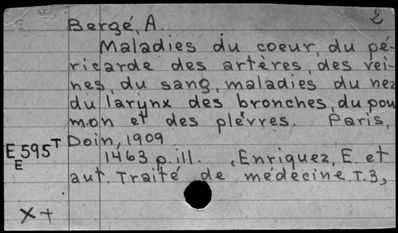 2
Bergé, A.
Maladies du coeur, du pé-
ricarde des artères, des vei-
nes, du sang, maladies du nez
du larynx des bronches, du pou
mon et des plèvres. Paris,
Doin, 1909
E595T
E
1463 p. ill. (Enriquez, E. et
aut. Traité de médecine T.3,
X+